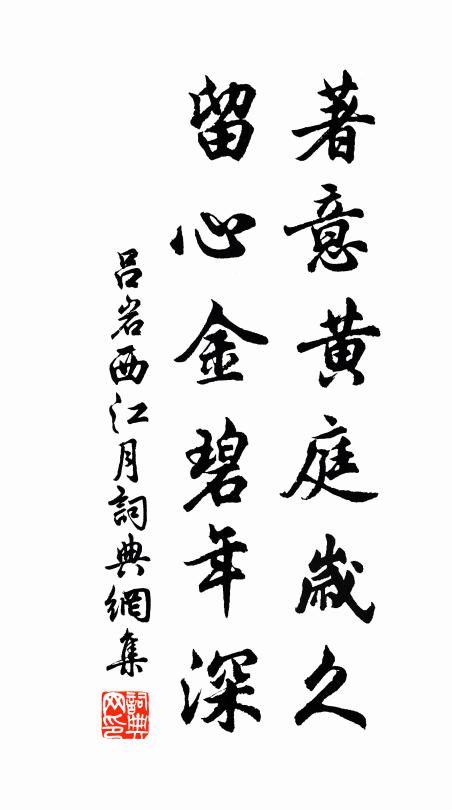 著意黃庭歲久
留心金碧年深
呂岩西江月詞典網集
詞典
网印